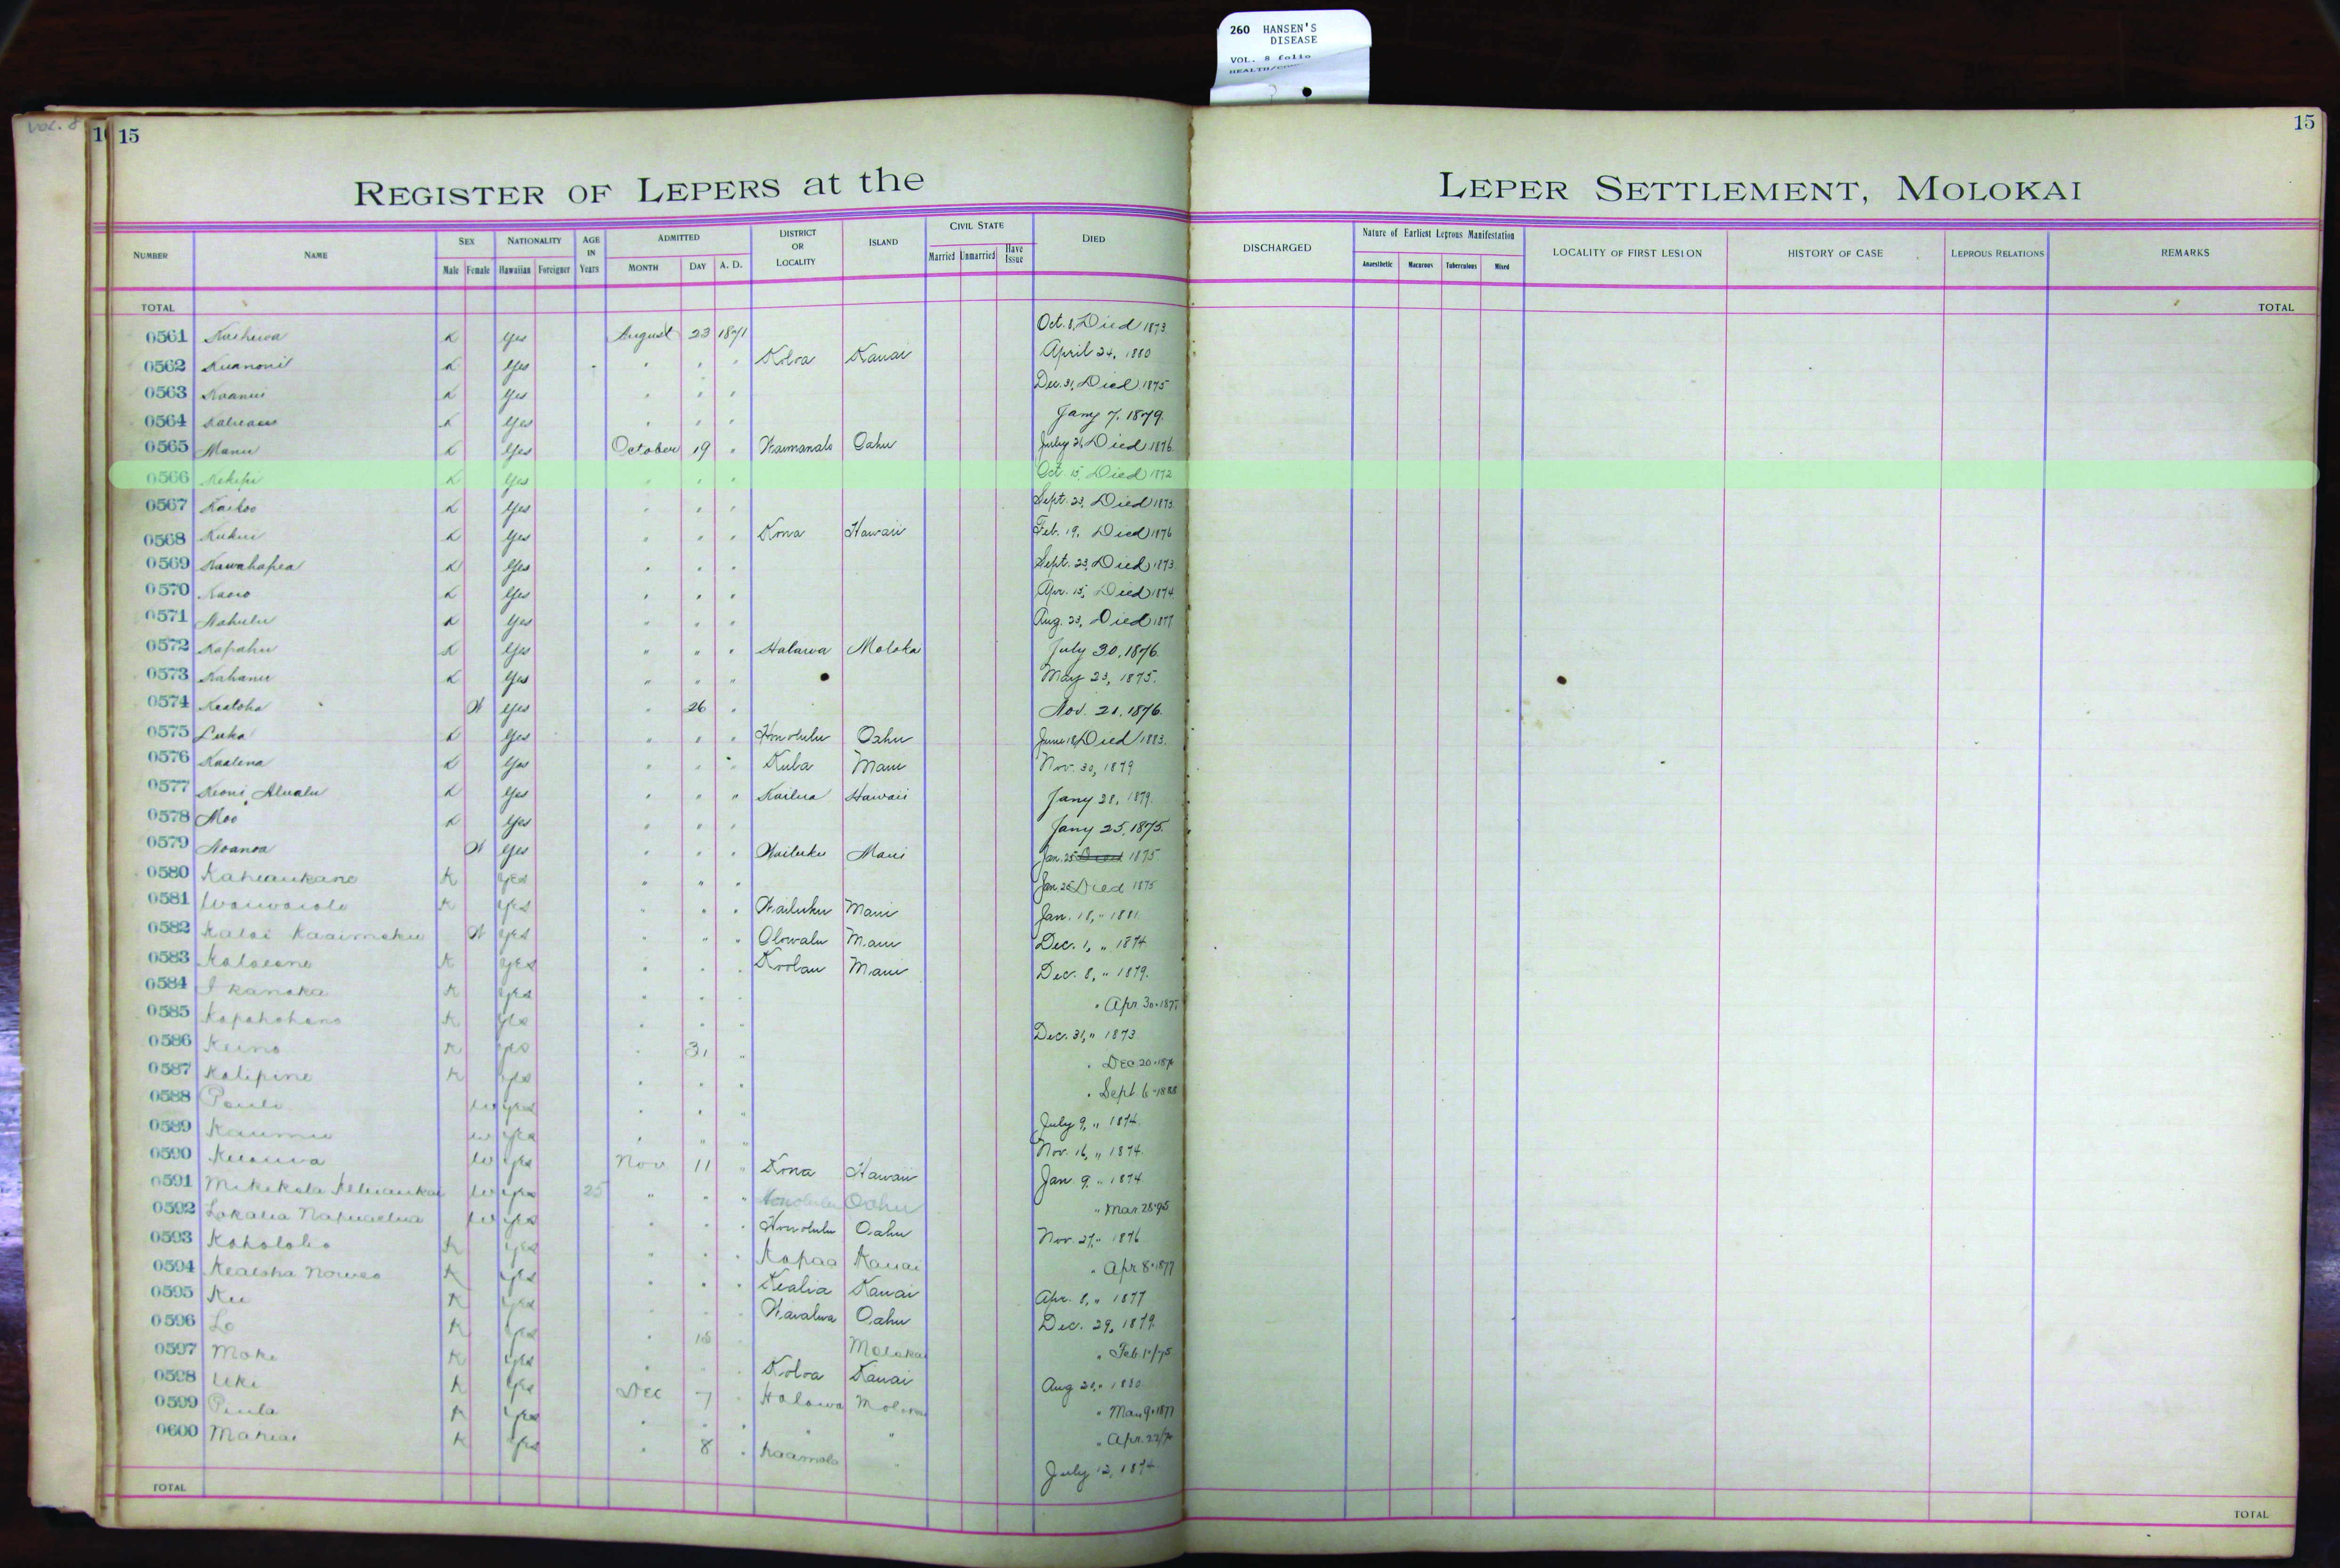 260 HANSEN'S
DISEASE
VOL. 8 folio
Vol. 8
15
15
REGISTER OF LEPERS at the LEPER SETTLEMENT, MOLOKAI
NUMBER NAME SEX Male Female NATIONALITY Hawaiian Foreigner AGE IN Years ADMITTED MONTH DAY A. D. DISTRICT OR LOCALITY ISLAND CIVIL STATE Married Unmarried Have Issue DIED DISCHARGED Nature of Earliest Leprous Manifestation Anaesthetic Macurous Tuberculous Mixed LOCALITY OF FIRST LESION HISTORY OF CASE LEPROUS RELATIONS REMARKS
TOTAL TOTAL
0561 K Yes August 23 1871 Oct. 8, Died 1873.
0562 Kuanonil K Yes " " " Koloa Kauai April 24, 1880
0563 Koanui K Yes " " " Dec. 31, Died 1875
0564 K Yes " " " Jany 7, 1879.
0565 Manu K Yes October 19 " Waimanalo Oahu July 26 Died 1876.
0566 Kekipi K Yes " " " Oct. 15, Died 1872
0567 Kaikoo K Yes " " " Sept. 23, Died 1873.
0568 Kukui K Yes " " " Kona Hawaii Feb. 19, Died 1876
0569 Kawahapea K Yes " " " Sept. 23, Died 1873.
0570 K Yes " " " Apr. 15, Died 1874.
0571 Nahulu K Yes " " " Aug. 23, Died 1877
0572 Kapahu K Yes " " " Halawa Moloka July 30, 1876.
0573 Kahanu K Yes " " " May 23, 1875.
0574 Kealoha W Yes " 26 " Nov. 21, 1876.
0575 Luka K Yes " " " Honolulu Oahu June 18, Died 1883.
0576 Kaalena K Yes " " " Kula Maui Nov. 30, 1879
0577 Keoni Alualu K Yes " " " Kailua Hawaii Jany 28, 1879.
0578 Moo K Yes " " " Jany 25, 1875.
0579 Noanoa W Yes " " " Wailuku Maui Jan. 25 Died 1875
0580 Kaheaukane K Yes " " " Jan. 25 Died 1875
0581 Waiwaiole K Yes " " " Wailuku Maui Jan. 18, " 1881
0582 Kalai Kaaimoku W Yes " " " Olowalu Maui Dec. 1, " 1874
0583 K Yes " " " Koolau Maui Dec. 8, " 1879.
0584 I kanaka K Yes " " " " Apr 30-187
0585 Kapahohano K Yes " " " Dec. 31, " 1873
0586 Keino K Yes " 31 " " Dec 20-187
0587 Kalipine K Yes " " " " Sept 6-1888
0588 Pauli W Yes " " " July 9, " 1874.
0589 Kaumu W Yes " " " Nov. 16, " 1874.
0590 W Yes Nov 11 " Kona Hawaii Jan 9. " 1874
0591 Mikikola W Yes 25 " " " Honolulu Oahu " Mar. 28-95
0592 W Yes " " " Honolulu Oahu Nov. 27, " 1876
0593 Koholoho K Yes " " " Kapaa Kauai " Apr 8-1877
0594 Kealoha K Yes " " " Kealia Kauai Apr. 8, " 1877
0595 Ku K Yes " " " Waialua Oahu Dec. 29, 1879.
0596 Lo K Yes " 18 " Moloka " Feb.
0597 Moke K Yes " " " Koloa Kauai Aug 20, " 1880
0598 Uki K Yes Dec 7 " Halawa " 1877
0599 Piula K Yes " " " " " " Apr. 22
0600 K Yes " 8 " Kaamola " July 12, 1874
TOTAL TOTAL